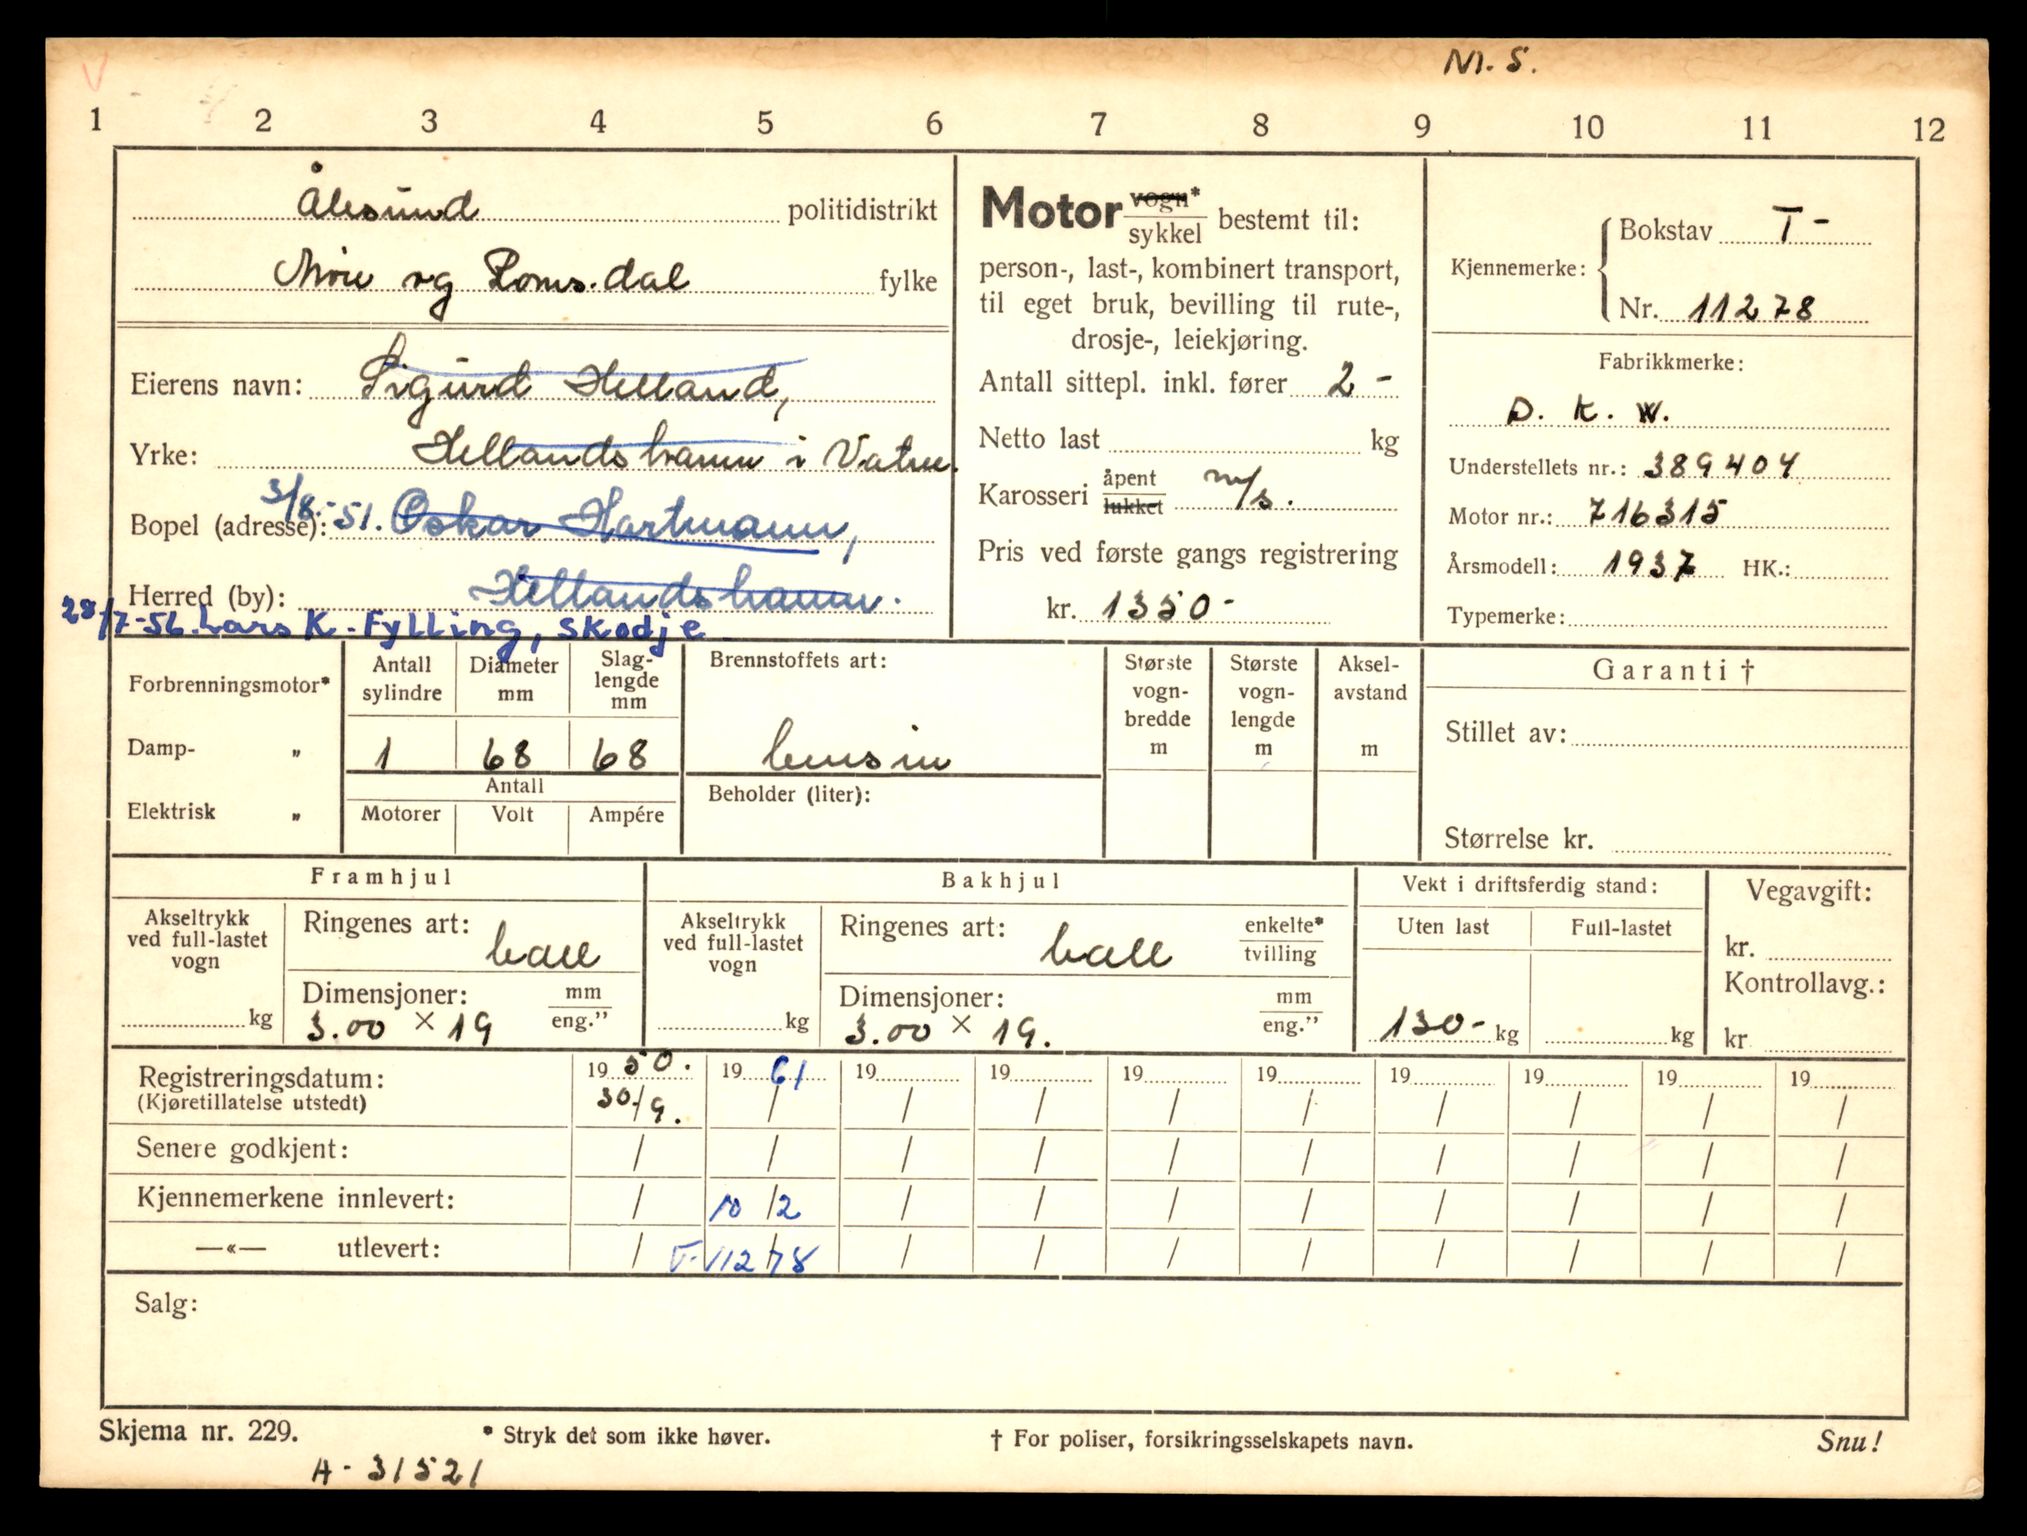 M. S.
1 2 3 4 5 6 7 8 9 10 11 12
Ålesund politidistrikt
Møre og Romsdal fylke
Eierens navn: Sigurd Helland,
Yrke: Hellandshamn i Vatne.
Bopel (adresse): 3/8.-51. Oskar Hartmann,
Herred (by): Hellandshamn.
28/7-56. Lars K. Fylling, Skodje
Motor vogn* / sykkel bestemt til:
person-, last-, kombinert transport,
til eget bruk, bevilling til rute-,
drosje-, leiekjøring.
Antall sittepl. inkl. fører 2 -
Netto last kg
Karosseri åpent / lukket m/s.
Pris ved første gangs registrering
kr. 1350-
Kjennemerke: Bokstav T -
Nr. 11278
Fabrikkmerke:
D. K. W.
Understellets nr.: 389404
Motor nr.: 716315
Årsmodell: 1937 HK.:
Typemerke:
Forbrenningsmotor*
Damp- „
Elektrisk „
Antall sylindre
Diameter mm
Slag-lengde mm
1 68 68
Antall
Motorer Volt Ampére
Brennstoffets art:
bensin
Beholder (liter):
Største vogn-bredde m
Største vogn-lengde m
Aksel-avstand m
Garanti †
Stillet av:
Størrelse kr.
Framhjul
Akseltrykk ved full-lastet vogn
kg
Ringenes art: ball
Dimensjoner: mm / eng.”
3.00 × 19
Bakhjul
Akseltrykk ved full-lastet vogn
kg
Ringenes art: ball enkelte* / tvilling
Dimensjoner: mm / eng.”
3.00 × 19.
Vekt i driftsferdig stand:
Uten last Full-lastet
130- kg kg
Vegavgift:
kr.
Kontrollavg.:
kr
Registreringsdatum: 19 50. 19 61 19 19 19 19 19 19 19 19
(Kjøretillatelse utstedt) 30/9. / / / / / / / / /
Senere godkjent: / / / / / / / / / /
Kjennemerkene innlevert: / 10/2 / / / / / / / /
—«— utlevert: / T-11278 / / / / / / / /
Salg:
Skjema nr. 229. * Stryk det som ikke høver. † For poliser, forsikringsselskapets navn. Snu!
A - 31521